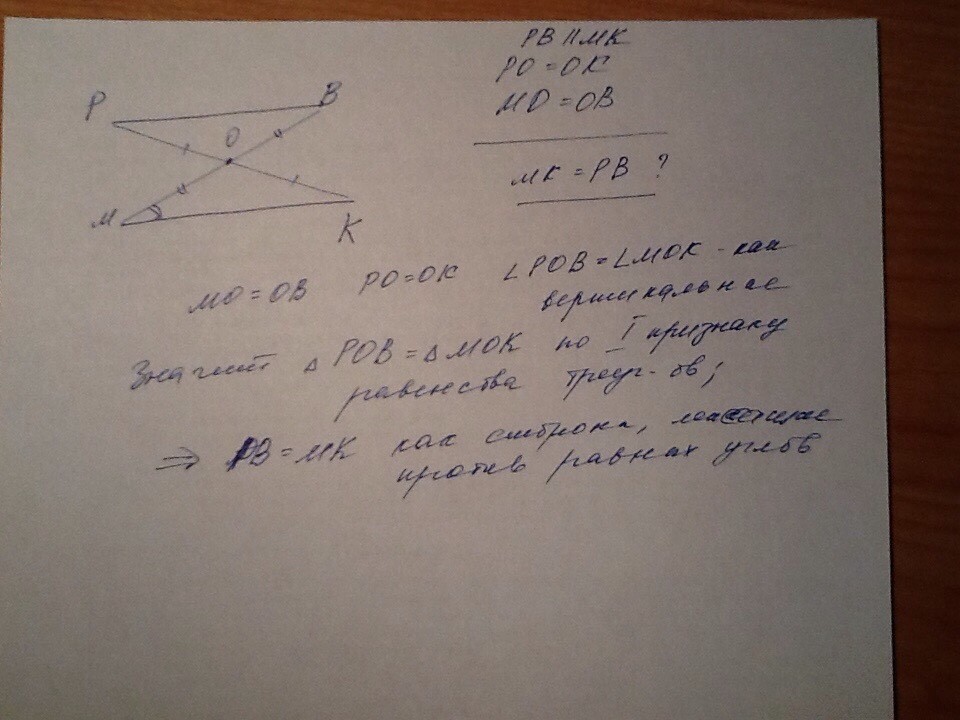 PB || MK
PO = OK
MO = OB
MK = PB ?
P
B
O
M
K
MO = OB PO = OK ∠POB = ∠MOK - как
вертикальные
Значит △ POB = △ MOK по I признаку
равенства треуг-ов;
⇒ PB = MK как сторона, лежащие
против равных углов